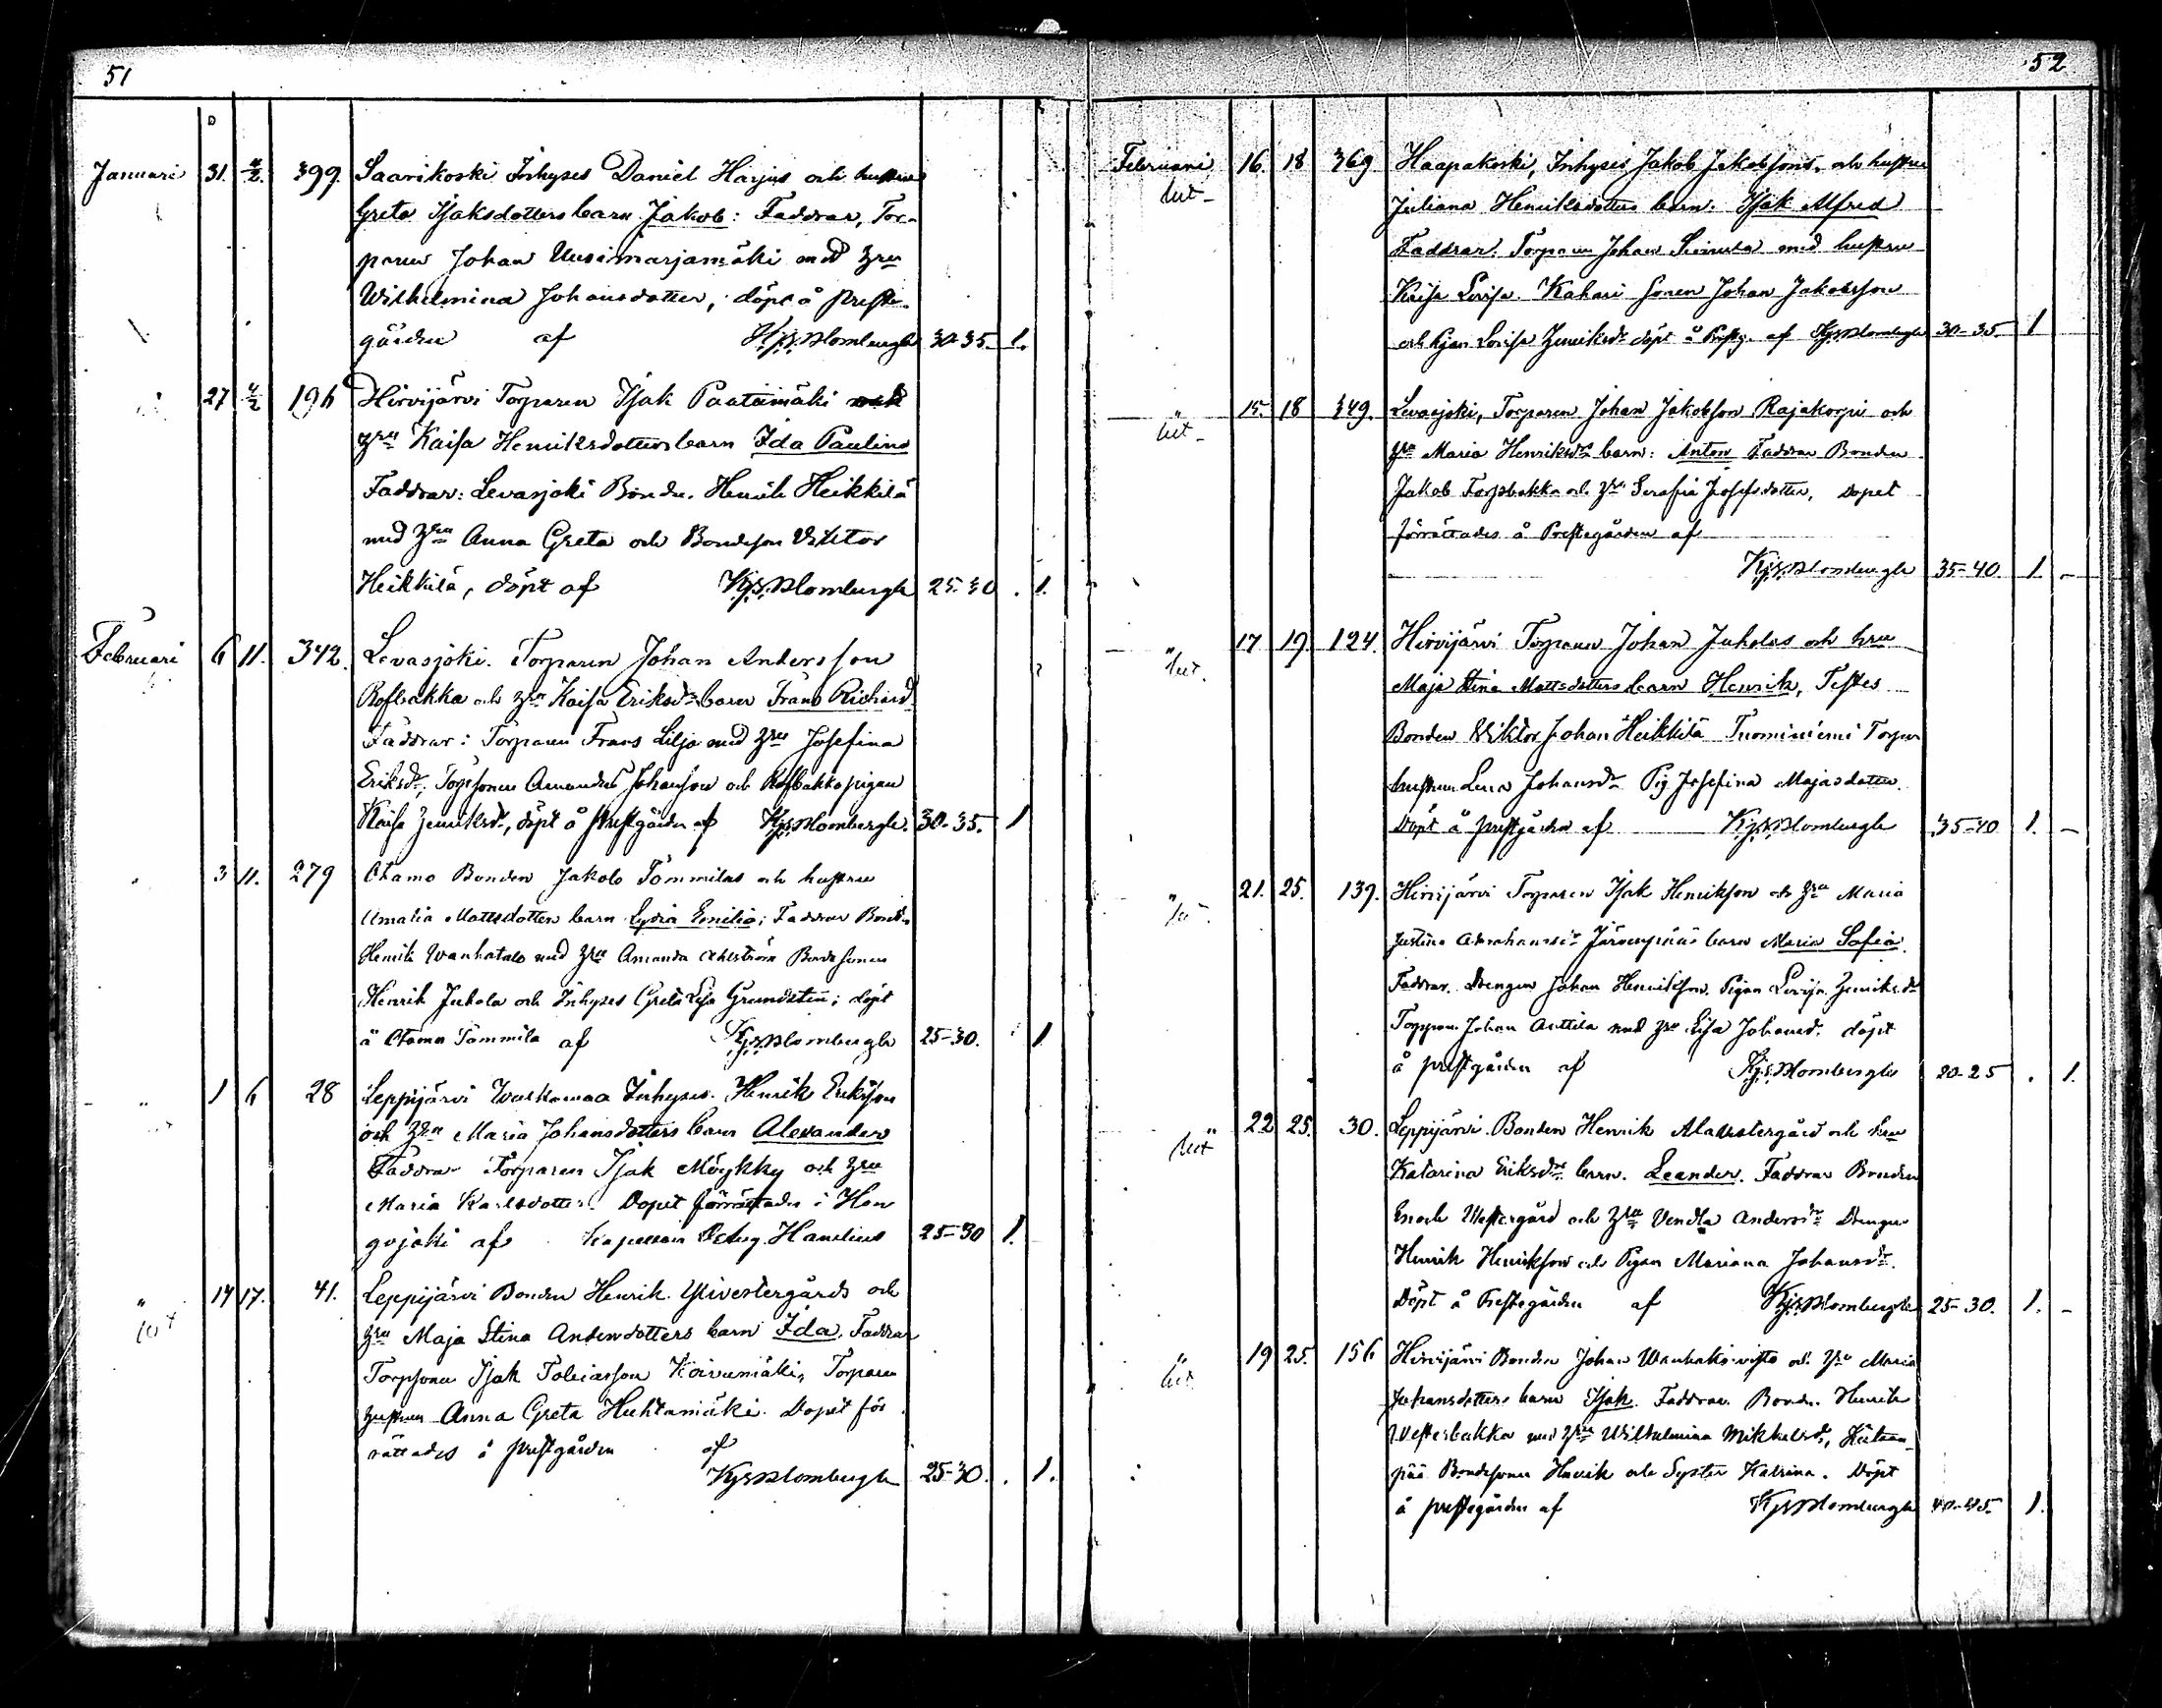 51
Januari 31. 4/2. 399. Saarikoski Inhyses Daniel Harjus och hustru
Greta Isaksdotters barn Jakob: Faddrar, Tor-
paren Johan Uusimarjamäki med hru
Wilhelmina Johansdotter, döpt å Preste-
gården af Kjs. Blombergh 30-35. 1.
27 4/2 196 Hirvijärvi Torparen Isak Paatamäki och
hru Kaisa Henriksdotters barn Ida Paulina
Faddrar: Levasjoki Bonden Henrik Heikkilä
med hru Anna Greta och Bondeson Viktor
Heikkilä, döpt af Kjs. Blombergh 25-30 . 1.
Februari 6 11. 342. Levasjoki. Torparen Johan Andersson
Rofbakka och hru Kaisa Eriksdr barn Frans Richard
Faddrar: Torparen Frans Lilja med hru Josefina
Eriksdr, Torpsonen Amandus Johansson och Rofbakka pigan
Kaisa Henriksdr, döpt å Prestgården af Kjs. Blombergh. 30-35. 1
" 3 11. 279 Otamo Bonden Jakob Tommilas och hustru
Amalia Mattsdotters barn Lydia Emilia; Faddrar Bonden
Henrik Wanhatalo med hru Amanda Ahlström Bondesonen
Henrik Juhola och Inhyses Greta Lisa Grundsten; döpt
å Otamo Tommila af Kjs. Blombergh 25-30. 1
" 1 6 28 Leppijärvi Inhyses. Henrik Eriksson
och hru Maria Johansdotters barn Alexander
Faddrar Torparen Isak Möykky och hru
Maria Karlsdotter. Dopet förrättades i Hon
gojoki af Kapellan Hanelius 25-30 1.
" 14 17. 41. Leppijärvi Bonden Henrik Yliwestergårds och
hru Maja Stina Andersdotters barn Ida. Faddrar
Torpsonen Isak Tobiasson Koivumäki, Torpare
hustrun Anna Greta Huhtamäki. Dopet för
rättades å prestgården af
Kjs Blombergh 25-30. . 1.
52
Februari 16. 18 369 Haapakoski, Inhyses Jakob Jakobssons och hustru
Juliana Henriksdotters barn. Isak Alfred
Faddrar. Torparen Johan med hustru
Kaisa Lovisa. Kahari sonen Johan Jakobsson
och Pigan Lovisa Henriksdr döpt å Prestg. af Kjs Blombergh 30-35 1
" 15. 18 349. Levasjoki, Torparen Johan Jakobsson Rajakorpi och
hru Maria Henriksdrs barn: Anton Faddrar Bonden
Jakob Torpbakka och hru Serafia Josefsdotter, Dopet
förrättades å Prestegården af
Kjs. Blombergh 35-40 1. -
" 17 19 124. Hirvijärvi Torparen Johan Juholas och hru
Maja Stina Mattsdotters barn Henrik, Testes
Bonden Wiktor Johan Heikkilä Tuominiemi Torpar
hustrun Lena Johansdr Pig Josefina Majasdotter.
Döpt å prestgården af Kjs. Blombergh 35-40 1. -
" 21. 25. 139. Hirvijärvi Torparen Isak Henriksson och hru Maria
Justina Abrahamsdr Järvenpääs barn Maria Sofia.
Faddrar. Drengen Johan Henriksson. Pigan Lovisa Henriksdr
Torparen Johan Anttila med hru Lisa Johansdr. döpt
å prestgården af Kjs. Blombergh 20-25 . 1.
" 22 25. 30. Leppijärvi Bonden Henrik Alawestergård och hru
Katarina Eriksdrs barn. Leander. Faddrar Bonden
Enoch Westergård och hru Vendla Andersdr Drengen
Henrik Henriksson och Pigan Mariana Johansdr.
Döpt å Prestegården af Kjs. Blombergh 25-30. 1. -
" 19 25. 156 Hirvijärvi Bonden Johan Wanhakoivisto och hru Maria
Johansdotters barn Isak. Faddrar. Bonden Henrik
Westerbakka med hru Wilhelmina Mikkelsdr,
pää Bondesonen Henrik och Syster Katrina. Döpt
å prestegården af Kjs Blombergh 40-45. 1.